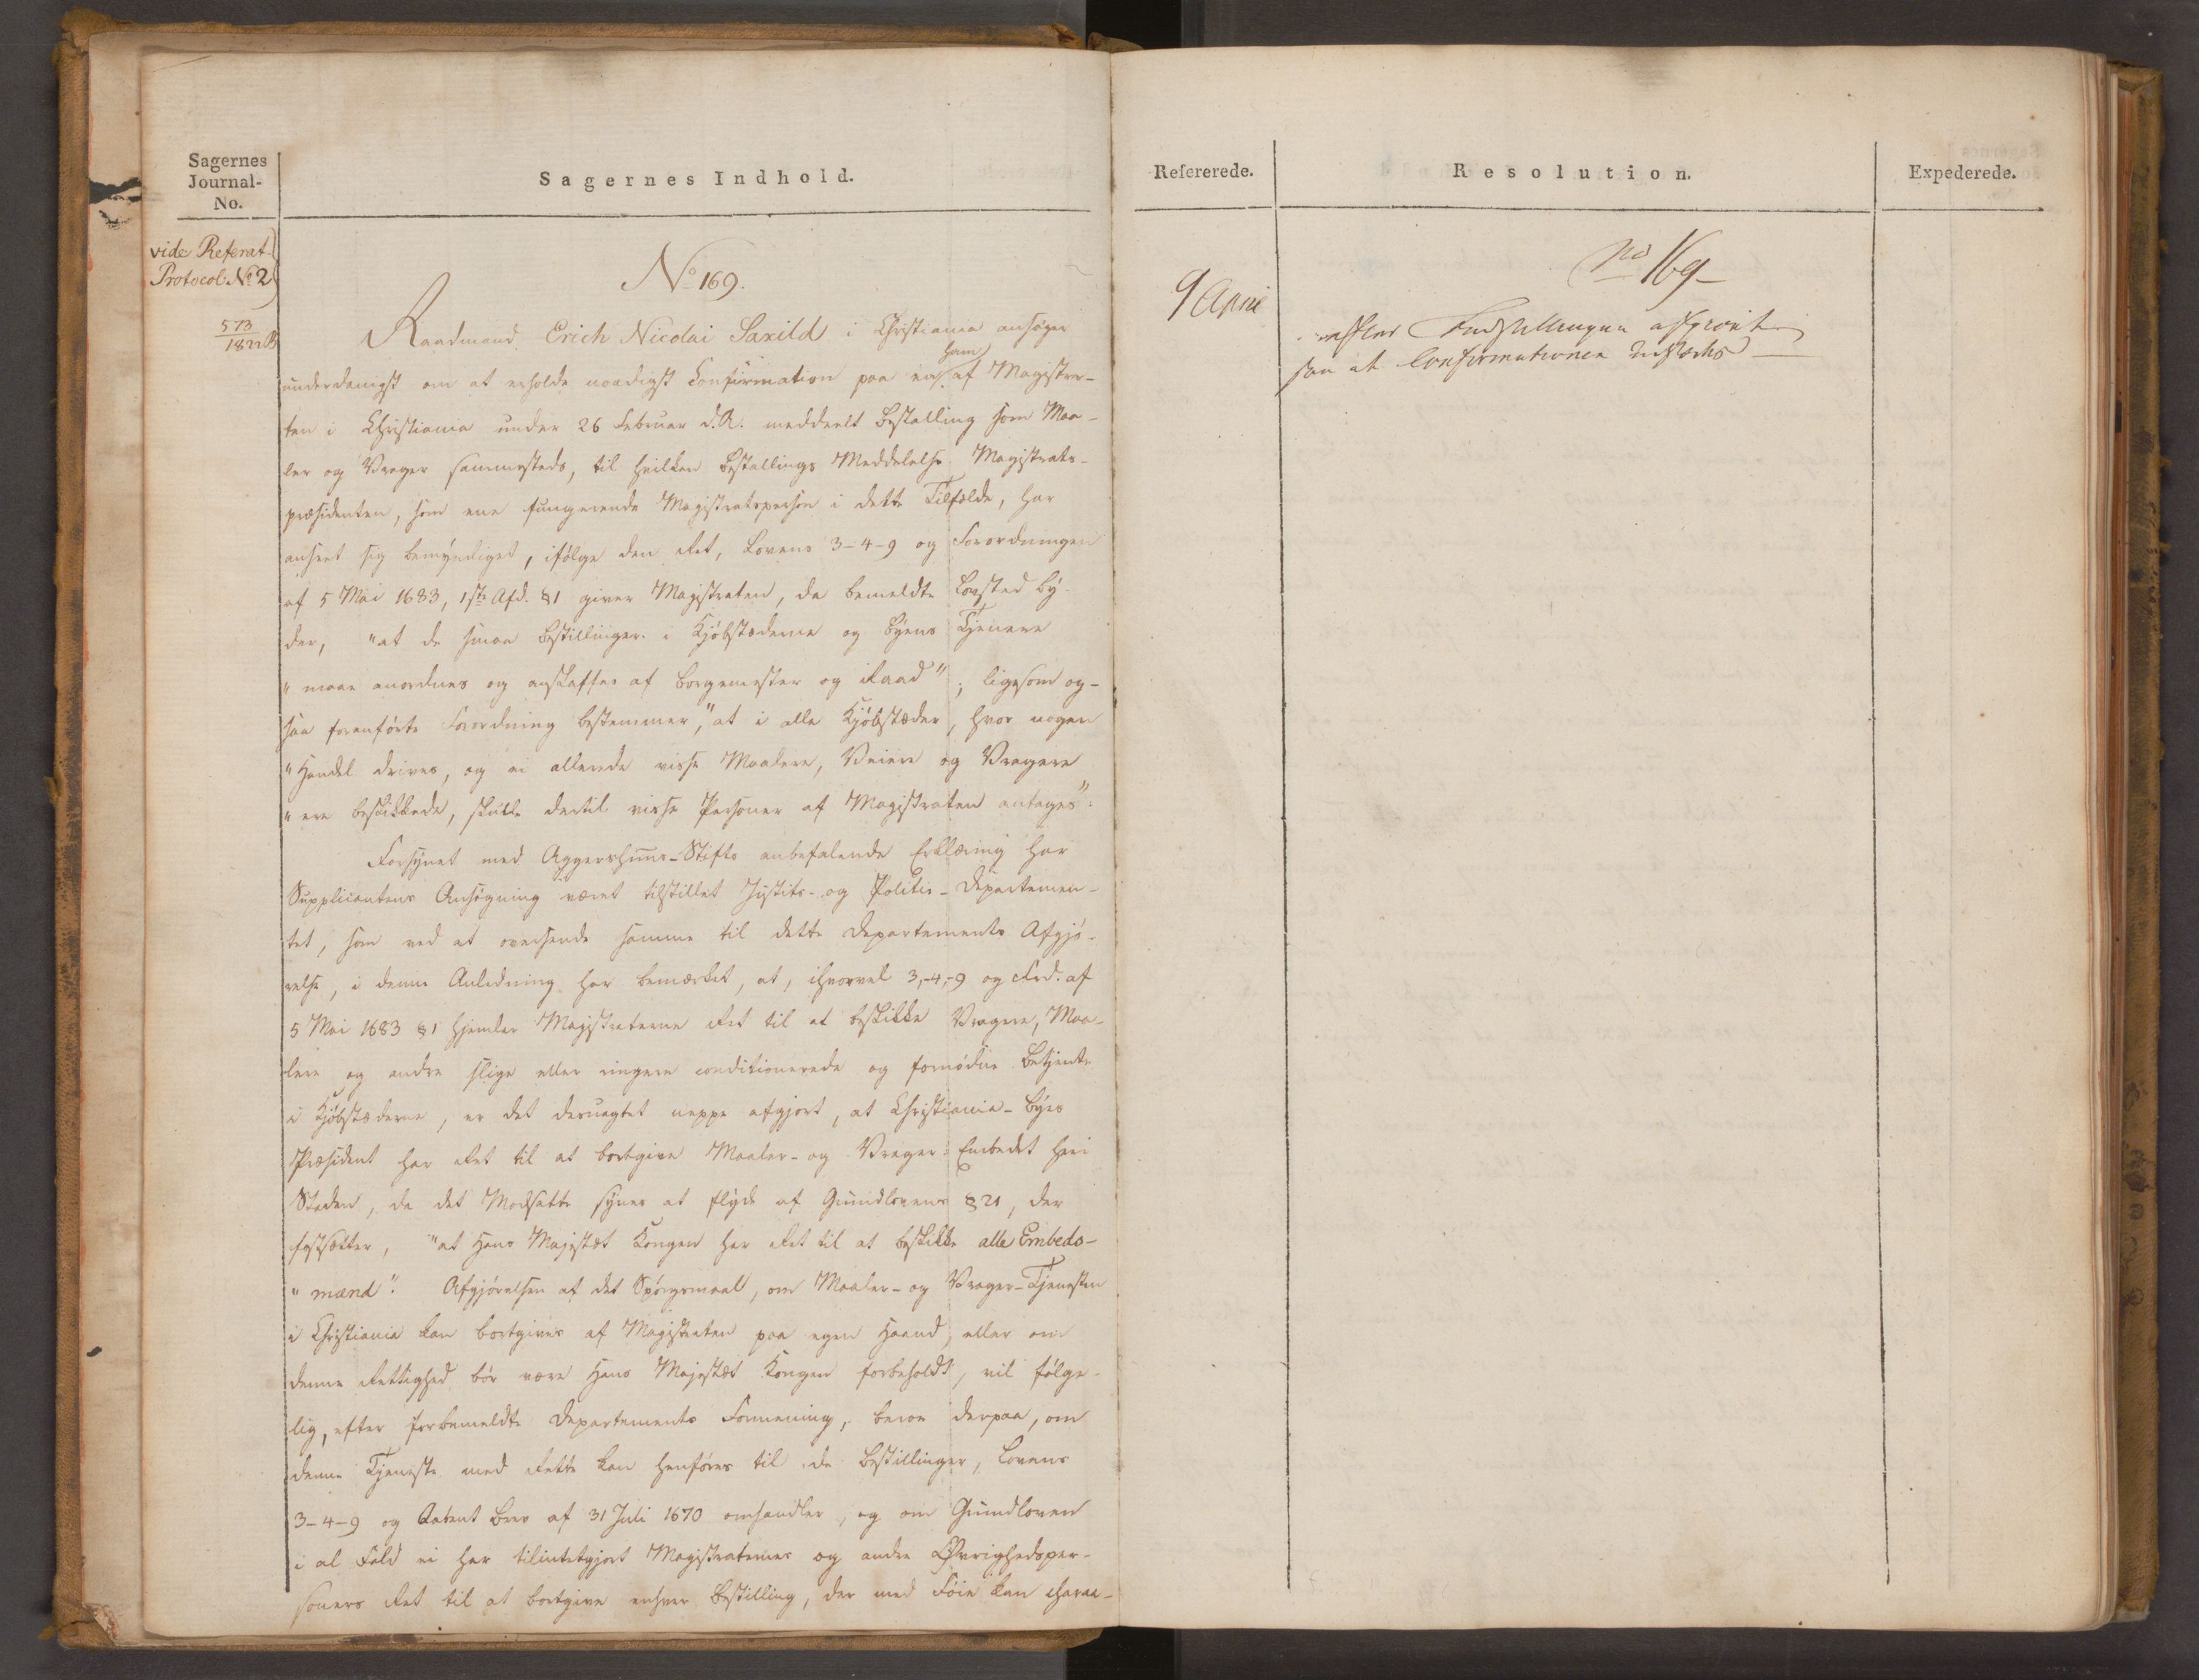 Sagernes
Journal-
No.
Sagernes Indhold.
vide Referat-
Protocol: No 2
No 169.
573
1822 B
Raadmand Erich Nicolai Saxild i Christiania ansøger
underdanigst om at erholde naadigst Confirmation paa en ham af Magistra-
ten i Christiania under 26 Februar d.A. meddeelt Bestalling som Maa-
ler og Vrager sammesteds, til hvilken Bestallings Meddelelse Magistrats-
præsidenten, som ene fungerende Magistratsperson i dette Tilfælde, har
anseet sig bemyndiget, ifølge den Ret, Lovens 3-4-9 og Forordningen
af 5 Mai 1683, 1ste Afd. §1 giver Magistraten, da bemeldte Lovsted by-
der, "at de smaa Bestillinger i Kjøbstæderne og Byens Tjenere
"maae anordnes og anskaffes af Borgemester og Raad"; ligesom og-
saa foranførte Forordning bestemmer, "at i alle Kjøbstæder, hvor nogen
"Handel drives, og ei allerede visse Maalere, Veiere og Vragere
"ere beskikkede, skulle dertil visse Personer af Magistraten antages":
Forsynet med Aggershuus-Stifts anbefalende Erklæring har
Supplicantens Ansøgning været tilstillet Justits- og Politie-Departemen-
tet, som ved at oversende samme til dette Departements Afgjø-
relse, i denne Anledning har bemærket, at, ihvorvel 3,-4,-9 og Frd. af
5 Mai 1683 §1 hjemler Magistraterne Ret til at beskikke Vragere, Maa-
lere og andre slige eller ringere conditionerede og fornødne Betjente
i Kjøbstæderne, er det deruagtet neppe afgjort, at Christiania-Byes
Præsident har Ret til at bortgive Maaler- og Vrager-Embedet heri
Staden, da det Modsatte synes at flyde af Grundlovens §21, der
fastsætter, "at Hans Majestæt Kongen har Ret til at beskikke alle Embeds-
"mænd". Afgjørelsen af det Spørgsmaal, om Maaler- og Vrager-Tjenesten
i Christiania kan bortgives af Magistraten paa egen Haand, eller om
denne Rettighed bør være Hans Majestæt Kongen forbeholdt, vil følge-
lig, efter forbemeldte Departements Formening, beroe derpaa, om
denne Tjeneste med Rette kan henføres til de Bestillinger, Lovens
3-4-9 og Aabent Brev af 31 Juli 1670 omhandler, og om Grundloven
i al Fald ei har tilintetgjort Magistraternes og andre Øvrighedsper-
soners Ret til at bortgive enhver Bestilling, der med Føie kan charac-
Refererede.
Resolution.
Expederede.
9 April
No 169
efter Indstillingen afgiort
saa at Confirmationen